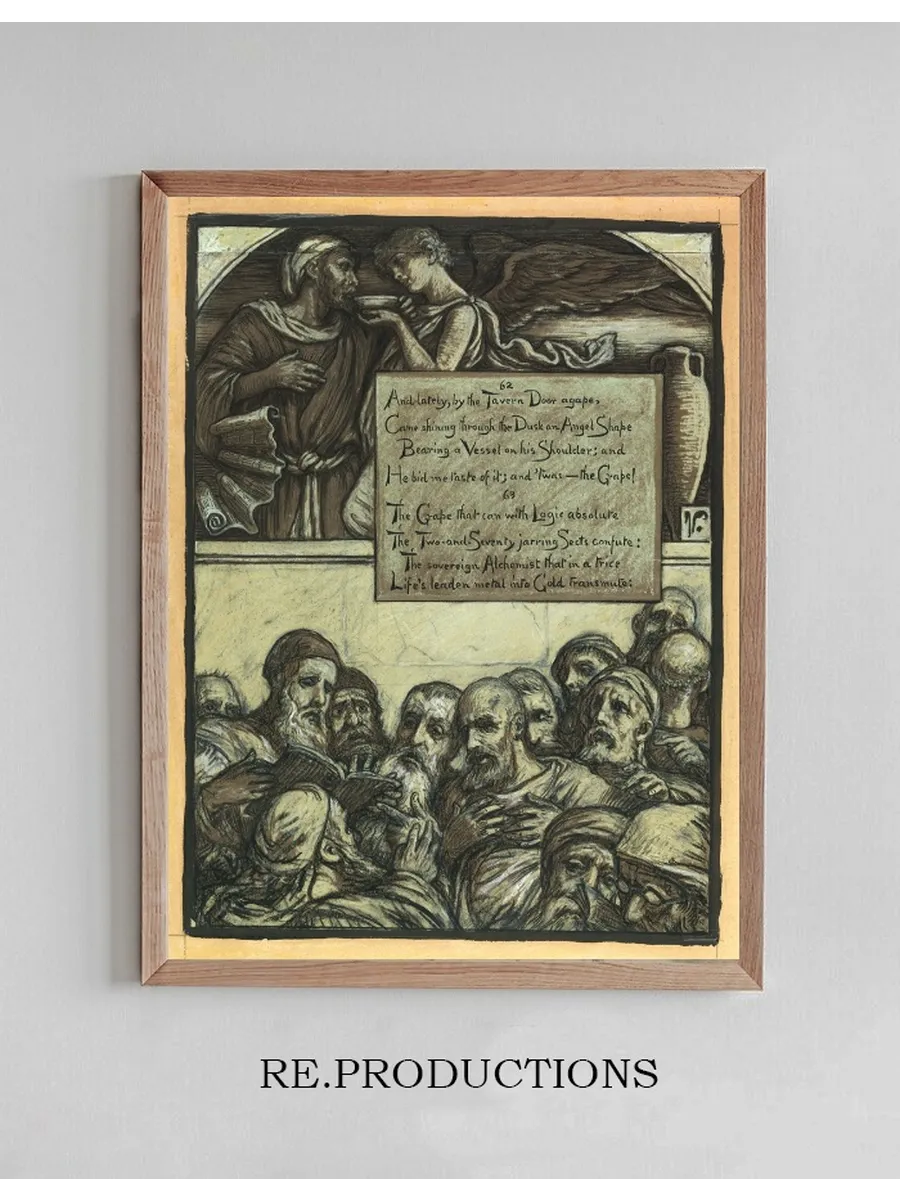 62
And lately, by the Tavern Door agape,
Came shining through the Dusk an Angel Shape
Bearing a Vessel on his Shoulder; and
He bid me taste of it; and 'twas — the Grape!
63
The Grape that can with Logic absolute
The Two-and-Seventy jarring Sects confute:
The sovereign Alchemist that in a trice
Life's leaden metal into Gold transmute:
V.
RE.PRODUCTIONS